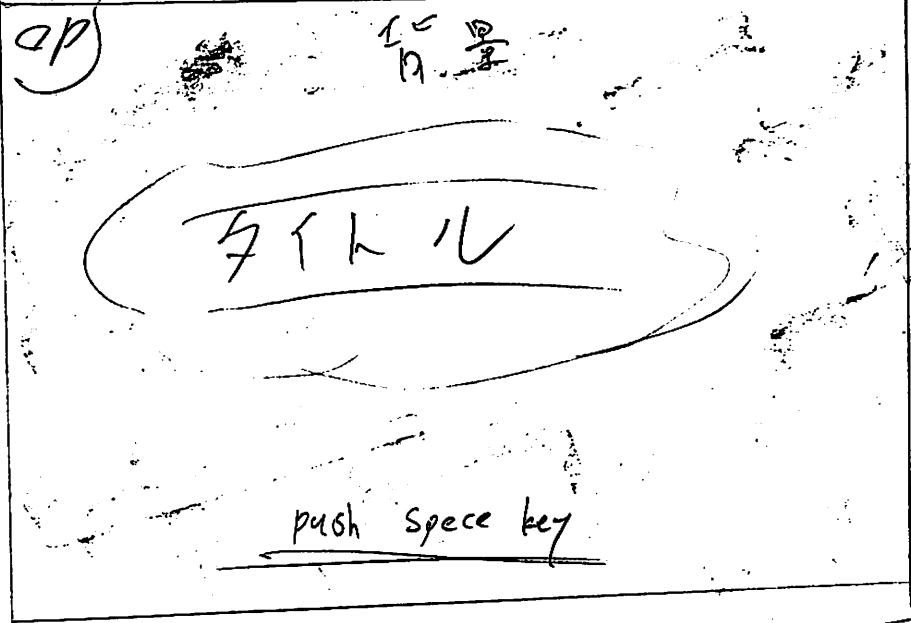 op
背景
タイトル
push spece key